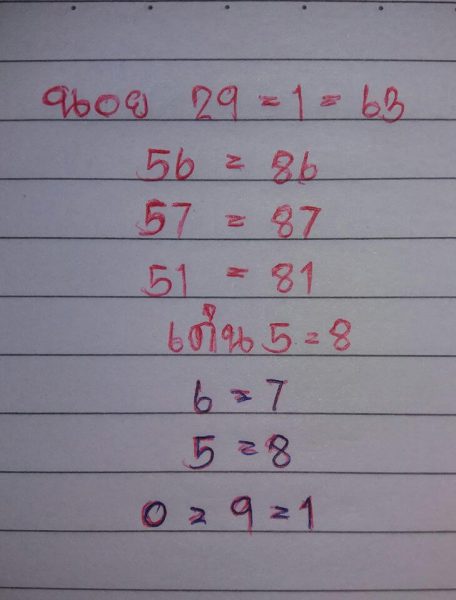 ฉเอย 29 = 1 = 63
56 = 86
57 = 87
51 = 81
เด่น 5 = 8
6 = 7
5 = 8
0 = 9 = 1